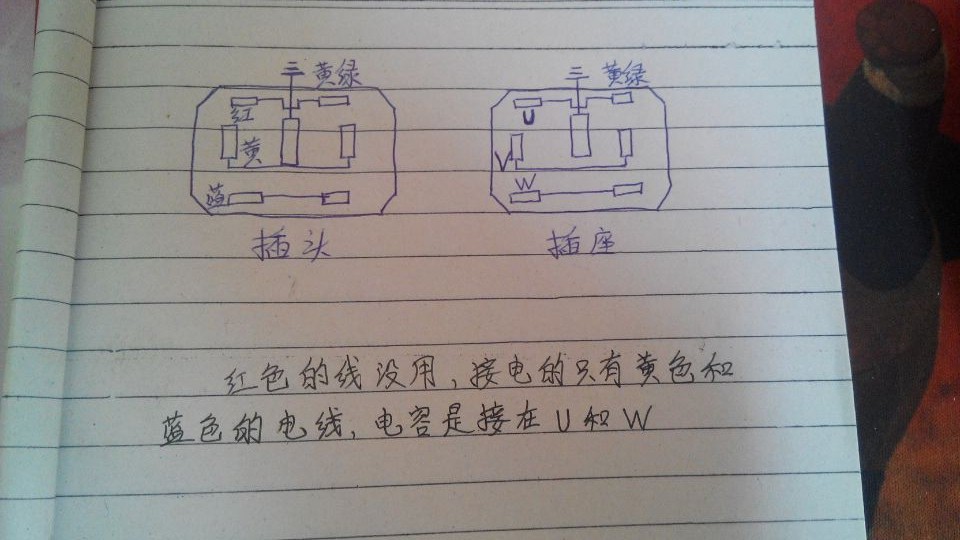 黄绿
红
黄
蓝
插头
黄绿
U
V
W
插座
红色的线没用，接电的只有黄色和
蓝色的电线，电容是接在U和W